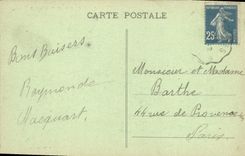 CARTE POSTALE
Bons Baisers
Raymonde
Macquart.
25
Monsieur et Madame
Barthe
44 rue de Provence
Paris